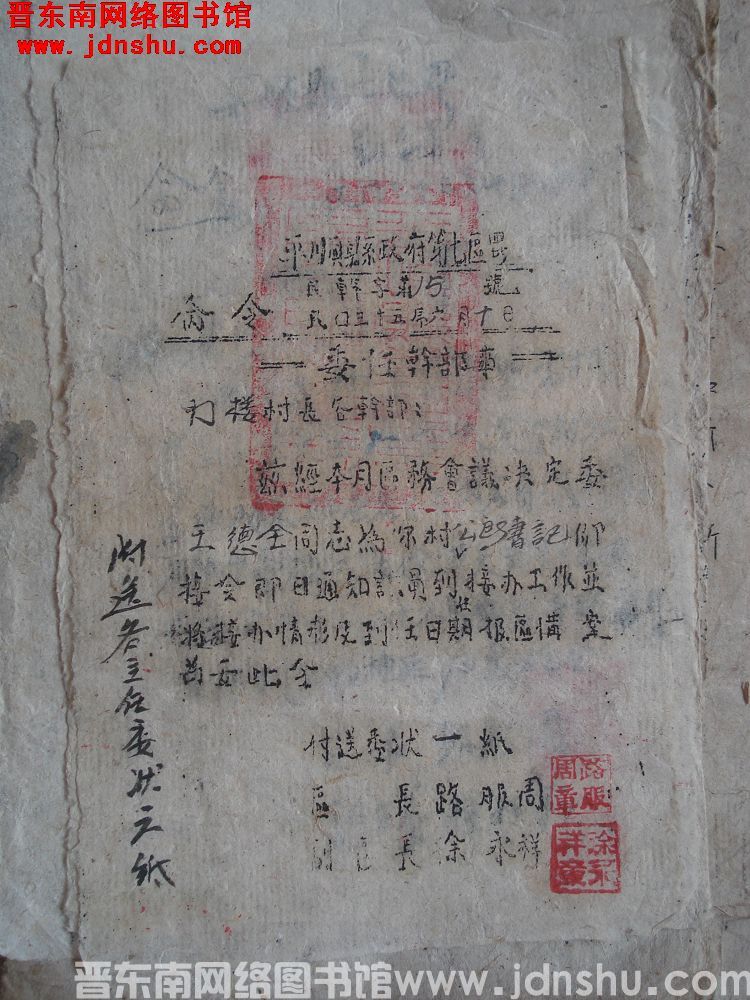 晋东南网络图书馆
www.jdnshu.com
平順縣政府第七區署
民幹字第15號
命令
民囗三十五年六月十日
委任幹部事
村長各幹部：
茲經本月區務會議决定委
王德全同志為你村公所書記仰
接令即日通知該員到任接办工作並
將接办情形及到任日期报區備案
為要此令
付送委状一紙
區長路服周
副區長徐永祥
路服周章
徐永祥章
附送各主任委状三紙
晋东南网络图书馆www.jdnshu.com